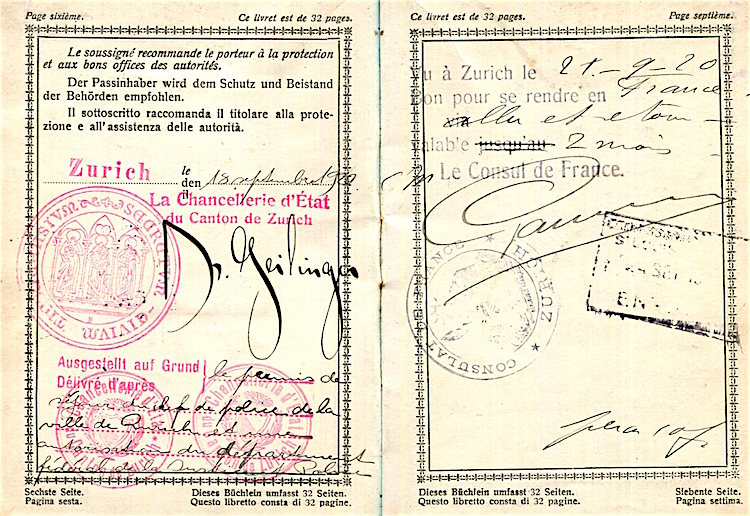 Page sixième. Ce livret est de 32 pages.
Le soussigné recommande le porteur à la protection
et aux bons offices des autorités.
Der Passinhaber wird dem Schutz und Beistand
der Behörden empfohlen.
Il sottoscritto raccomanda il titolare alla prote-
zione e all'assistenza delle autorità.
Zurich
le
den
il
13 septembre
La Chancellerie d'État
du Canton de Zurich
Dr. Geilinger
Ausgestellt auf Grund
Délivré d'après
le permis de
séjour du chef de police de la
ville de Zurich et une
autorisation du département
fédéral de la Justice et Police
Sechste Seite. Dieses Büchlein umfasst 32 Seiten.
Pagina sesta. Questo libretto consta di 32 pagine.
Ce livret est de 32 pages. Page septième.
Vu à Zurich le 21-9-20
Bon pour se rendre en France
aller et retour
valable jusqu'au 2 mois
Le Consul de France.
CONSULAT DE FRANCE
ZURICH
Dieses Büchlein umfasst 32 Seiten. Siebente Seite.
Questo libretto consta di 32 pagine. Pagina settima.